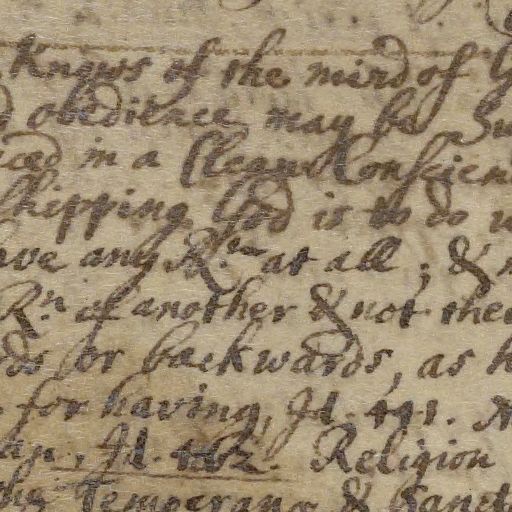 Knows of the mind of G
d obedience may be Su
iced in a Clean Conscien
shipping God is to do w
ave any R.n at all; & n
R.n of another & not thei
ds or backwards, as h
for having, Id. 441. N
an, Id. 442. Religion
Temperance & Sanct